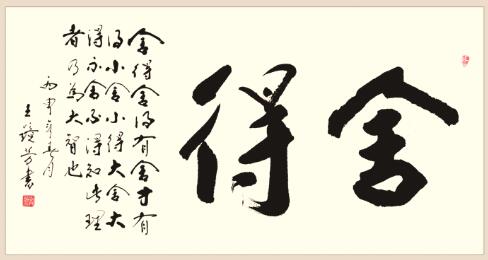 舍得
舍得舍得有舍才有
得小舍小得大舍大
得不舍不得知此理
者乃为大智也
丙申年月
王芳书